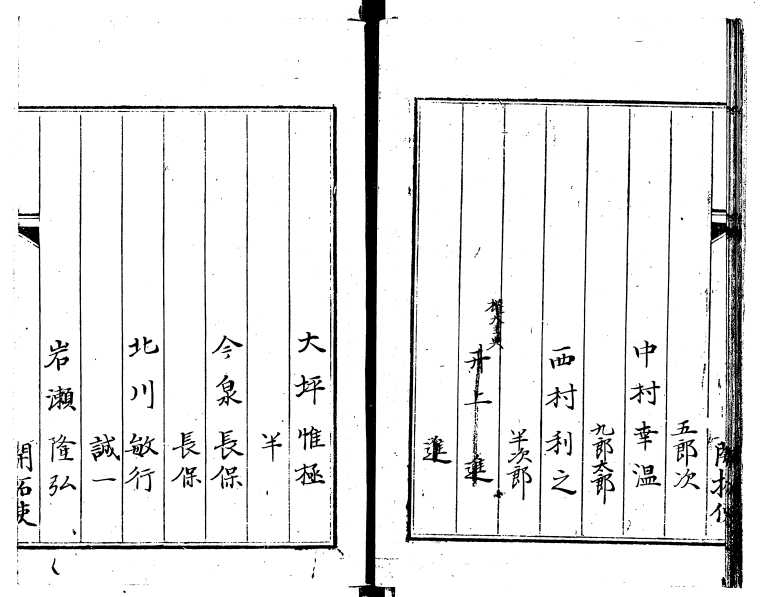 開拓使
五郎次
中村幸温
九郎太郎
西村利之
半次郎
権大主典
井上進
進
大坪惟極
半
今泉長保
長保
北川敏行
誠一
岩瀬隆弘
開拓使